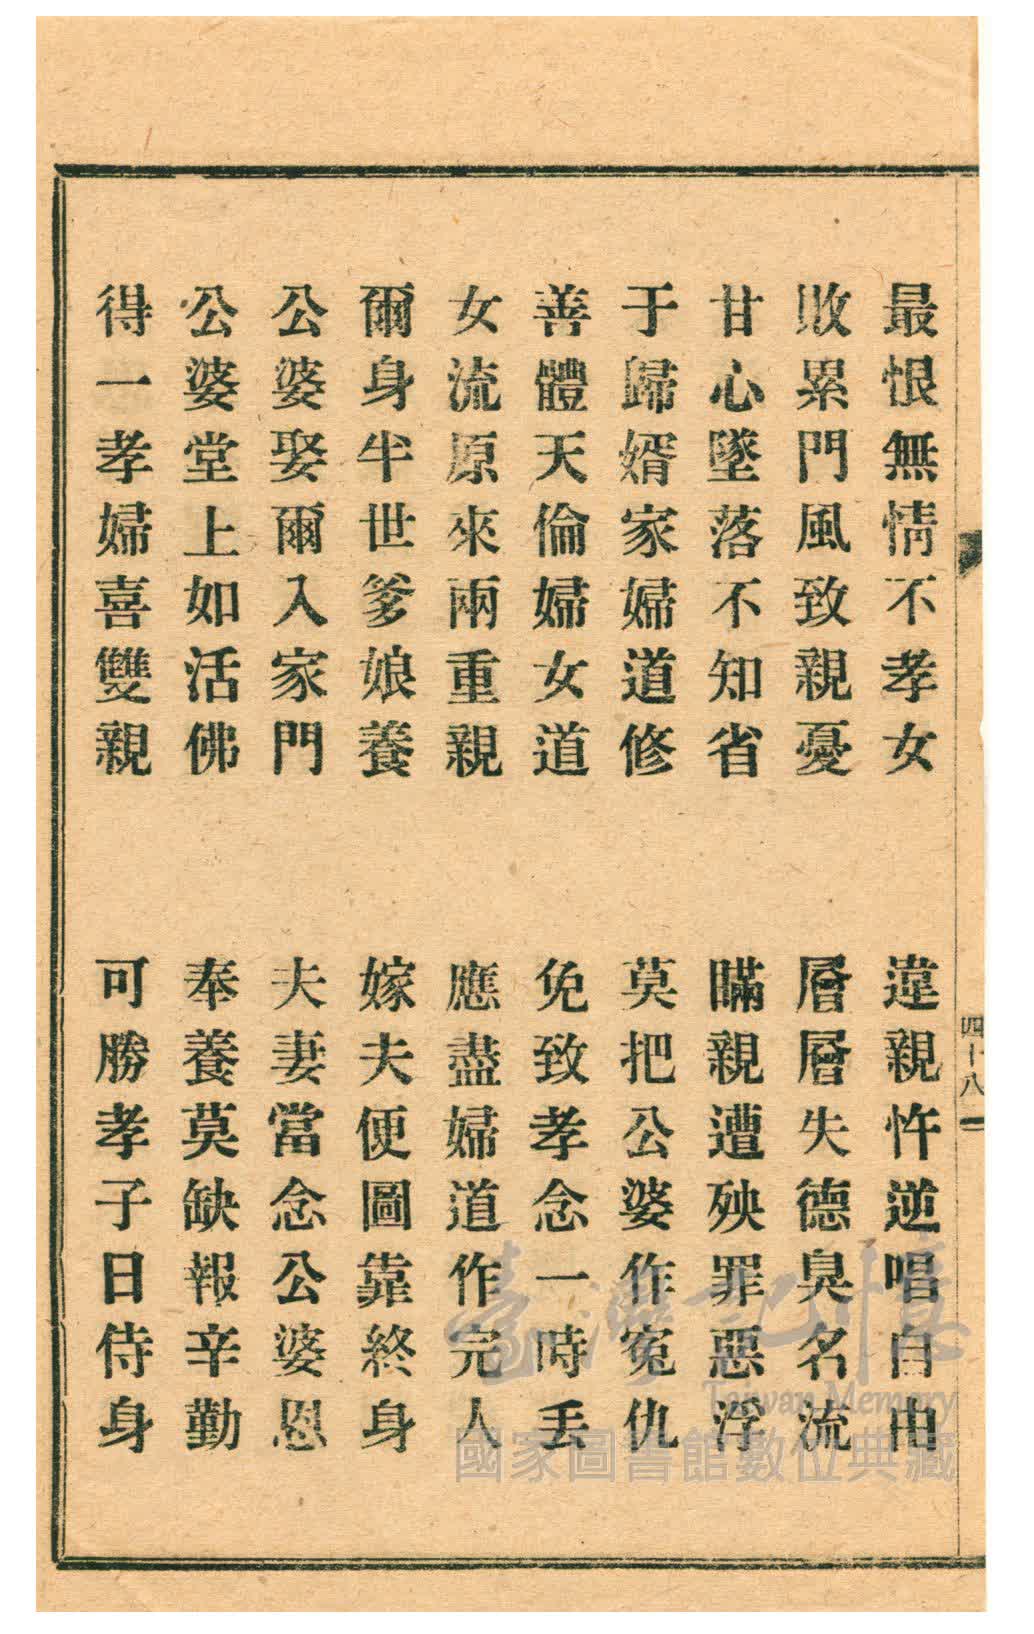 最恨無情不孝女　違親忤逆唱自由
敗累門風致親憂　層層失德臭名流
甘心墜落不知省　瞞親遭殃罪惡浮
于歸婿家婦道修　莫把公婆作寃仇
善體天倫婦女道　免致孝念一時丢
女流原來兩重親　應盡婦道作完人
爾身半世爹娘養　嫁夫便圖靠終身
公婆娶爾入家門　夫妻當念公婆恩
公婆堂上如活佛　奉養莫缺報辛勤
得一孝婦喜雙親　可勝孝子日侍身
四十八
臺灣記憶
Taiwan Memory
國家圖書館數位典藏